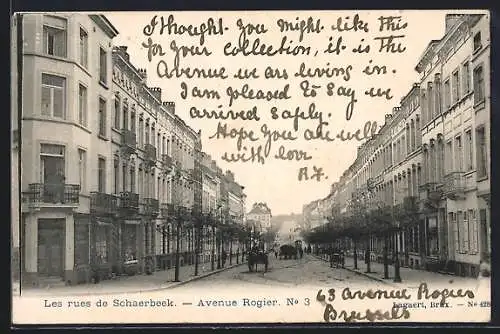 I thought you might like this
for your collection, it is the
Avenue we are living in.
I am pleased to say we
arrived safely.
Hope you are well
with love
R.F.
Les rues de Schaerbeek. — Avenue Rogier. No 3
63 Avenue Rogier
Brussels
Lagaert, Brux. — No 428